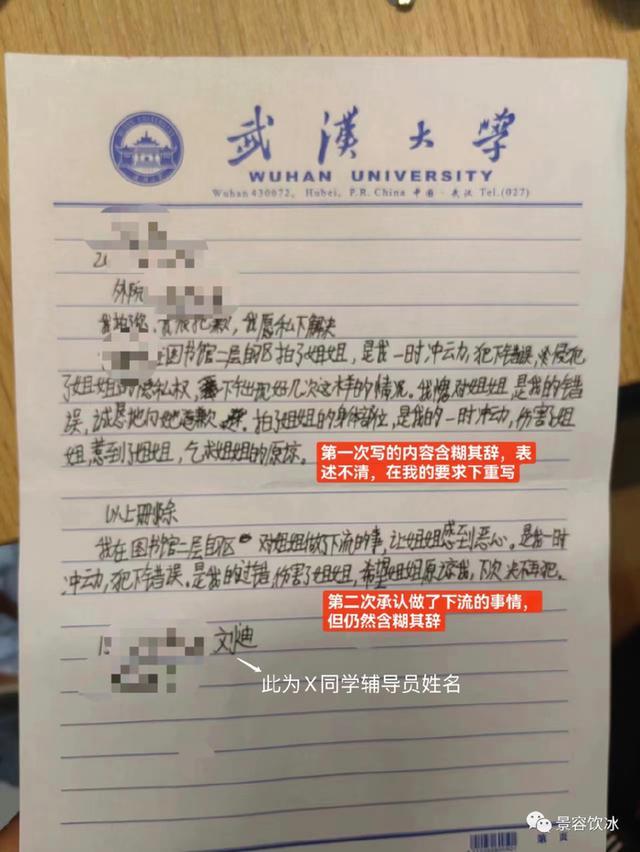 武漢大學
WUHAN UNIVERSITY
Wuhan 430072, Hubei, P.R. China 中国·武汉 Tel.(027)
外院
我抱歉, 我愿私下解决
在图书馆二层自区拍了姐姐, 是我一时冲动, 犯下错误, 侵犯
了姐姐的隐私权, 下午出现好几次这样的情况。我愧对姐姐, 是我的错
误, 诚恳地向她道歉. 拍了姐姐的身体部位, 是我的一时冲动, 伤害了姐
姐, 惹到了姐姐, 乞求姐姐的原谅。
第一次写的内容含糊其辞,表
述不清,在我的要求下重写
以上删除
我在图书馆二层自区 对姐姐做了下流的事, 让姐姐感到恶心。是我一时
冲动, 犯下错误。是我的过错, 伤害了姐姐, 希望姐姐原谅我, 下次决不再犯。
第二次承认做了下流的事情,
但仍然含糊其辞
刘迪
此为X同学辅导员姓名
景容饮冰
第 页